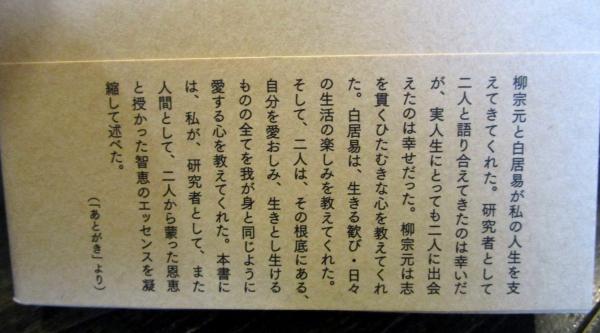 柳宗元と白居易が私の人生を支
えてきてくれた。研究者として
二人と語り合えてきたのは幸いだ
が、実人生にとっても二人に出会
えたのは幸せだった。柳宗元は志
を貫くひたむきな心を教えてくれ
た。白居易は、生きる歓び・日々
の生活の楽しみを教えてくれた。
そして、二人は、その根底にある、
自分を愛おしみ、生きとし生ける
ものの全てを我が身と同じように
愛する心を教えてくれた。本書に
は、私が、研究者として、また
人間として、二人から蒙った恩恵
と授かった智恵のエッセンスを凝
縮して述べた。
（「あとがき」より）